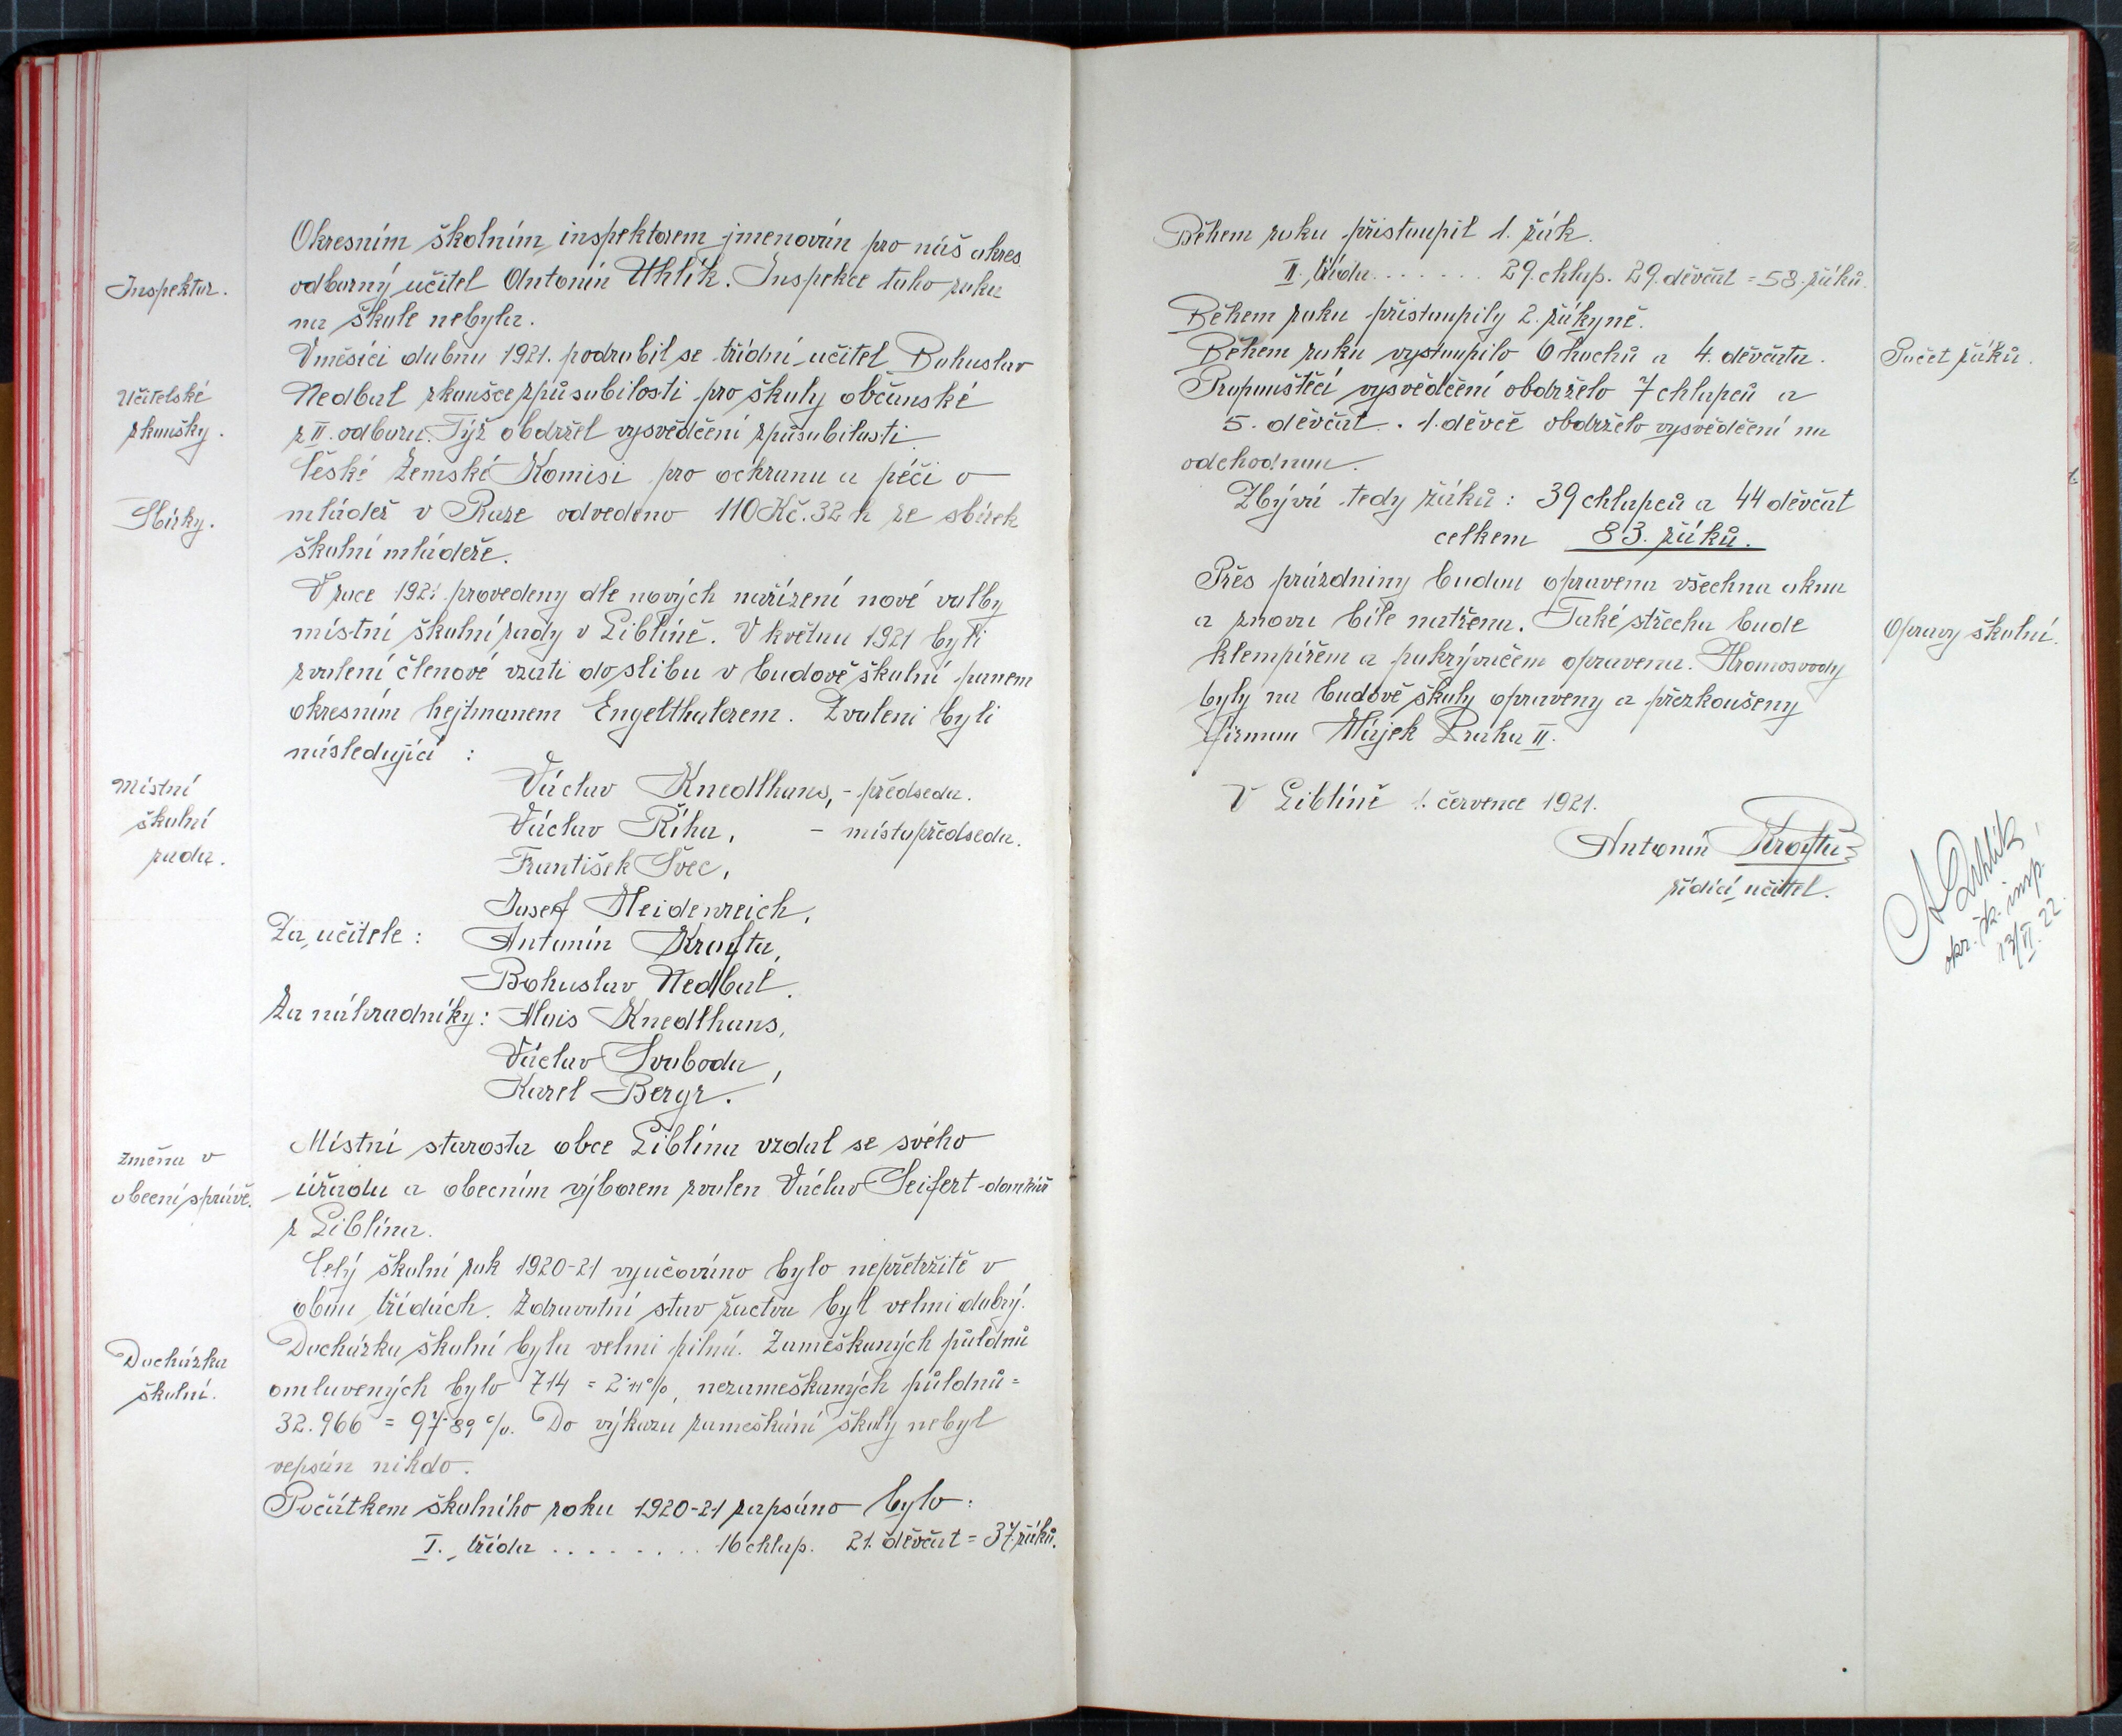 Okresním školním inspektorem jmenován pro náš okres
Inspektor.
odborný učitel Antonín Uhlík. Inspekce toho roku
na škole nebyla.
V měsíci dubnu 1921. podrobil se třídní učitel Bohuslav
Učitelské
zkoušky.
Nedbal zkoušce způsobilosti pro školy občanské
z II. odboru. Týž obdržel vysvědčení způsobilosti
České Zemské Komisi pro ochranu a péči o
Sbírky.
mládež v Praze odvedeno 110 Kč. 32 h ze sbírek
školní mládeže.
V roce 1921. provedeny dle nových nařízení nové volby
místní školní rady v Liblíně. V květnu 1921 byli
zvolení členové vzati do slibu v budově školní panem
okresním hejtmanem Engelthalerem. Zvoleni byli
následující :
Místní
školní
rada.
Václav Knedlhans, - předseda.
Václav Říha, - místopředseda.
František Švec,
Josef Heidenreich,
Za učitele : Antonín Krofta,
Bohuslav Nedbal.
Za náhradníky : Alois Knedlhans,
Václav Svoboda,
Karel Bergr.
Změna v
obecní správě.
Místní starosta obce Liblína vzdal se svého
úřadu a obecním výborem zvolen Václav Seifert - domkář
z Liblína.
Celý školní rok 1920-21 vyučováno bylo nepřetržitě v
obou třídách. Zdravotní stav žactva byl velmi dobrý.
Docházka
školní.
Docházka školní byla velmi pilná. Zameškaných půldnů
omluvených bylo 714 = 2·11%, nezameškaných půldnů =
32.966 = 97·89 %. Do výkazu zameškání školy nebyl
vepsán nikdo.
Počátkem školního roku 1920-21 zapsáno bylo :
I. třída ........ 16 chlap. 21. děvčat = 37. žáků.
Během roku přistoupil 1. žák.
II. třída ....... 29. chlap. 29. děvčat = 58. žáků.
Během roku přistoupily 2. žákyně.
Během roku vystoupilo 6 hochů a 4. děvčata.
Počet žáků.
Propouštěcí vysvědčení obdrželo 7 chlapců a
5. děvčat. 1. děvče obdrželo vysvědčení na
odchodnou.
Zbývá tedy žáků : 39 chlapců a 44 děvčat
celkem 83. žáků.
Přes prázdniny budou opravena všechna okna
a znovu bíle natřena. Také střecha bude
Opravy školní.
klempířem a pokrývačem opravena. Hromosvody
byly na budově školy opraveny a přezkoušeny
firmou Hájek Praha II.
V Liblíně 1. července 1921.
Antonín Krofta
řídící učitel.
A Uhlík
okr. šk. insp.
13/VI. 22.